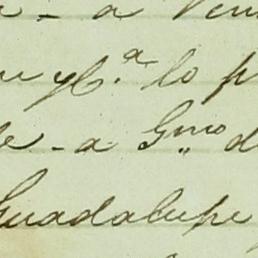 - a Ven
y C.ª lo p
le - a Gmo d
Guadalupe